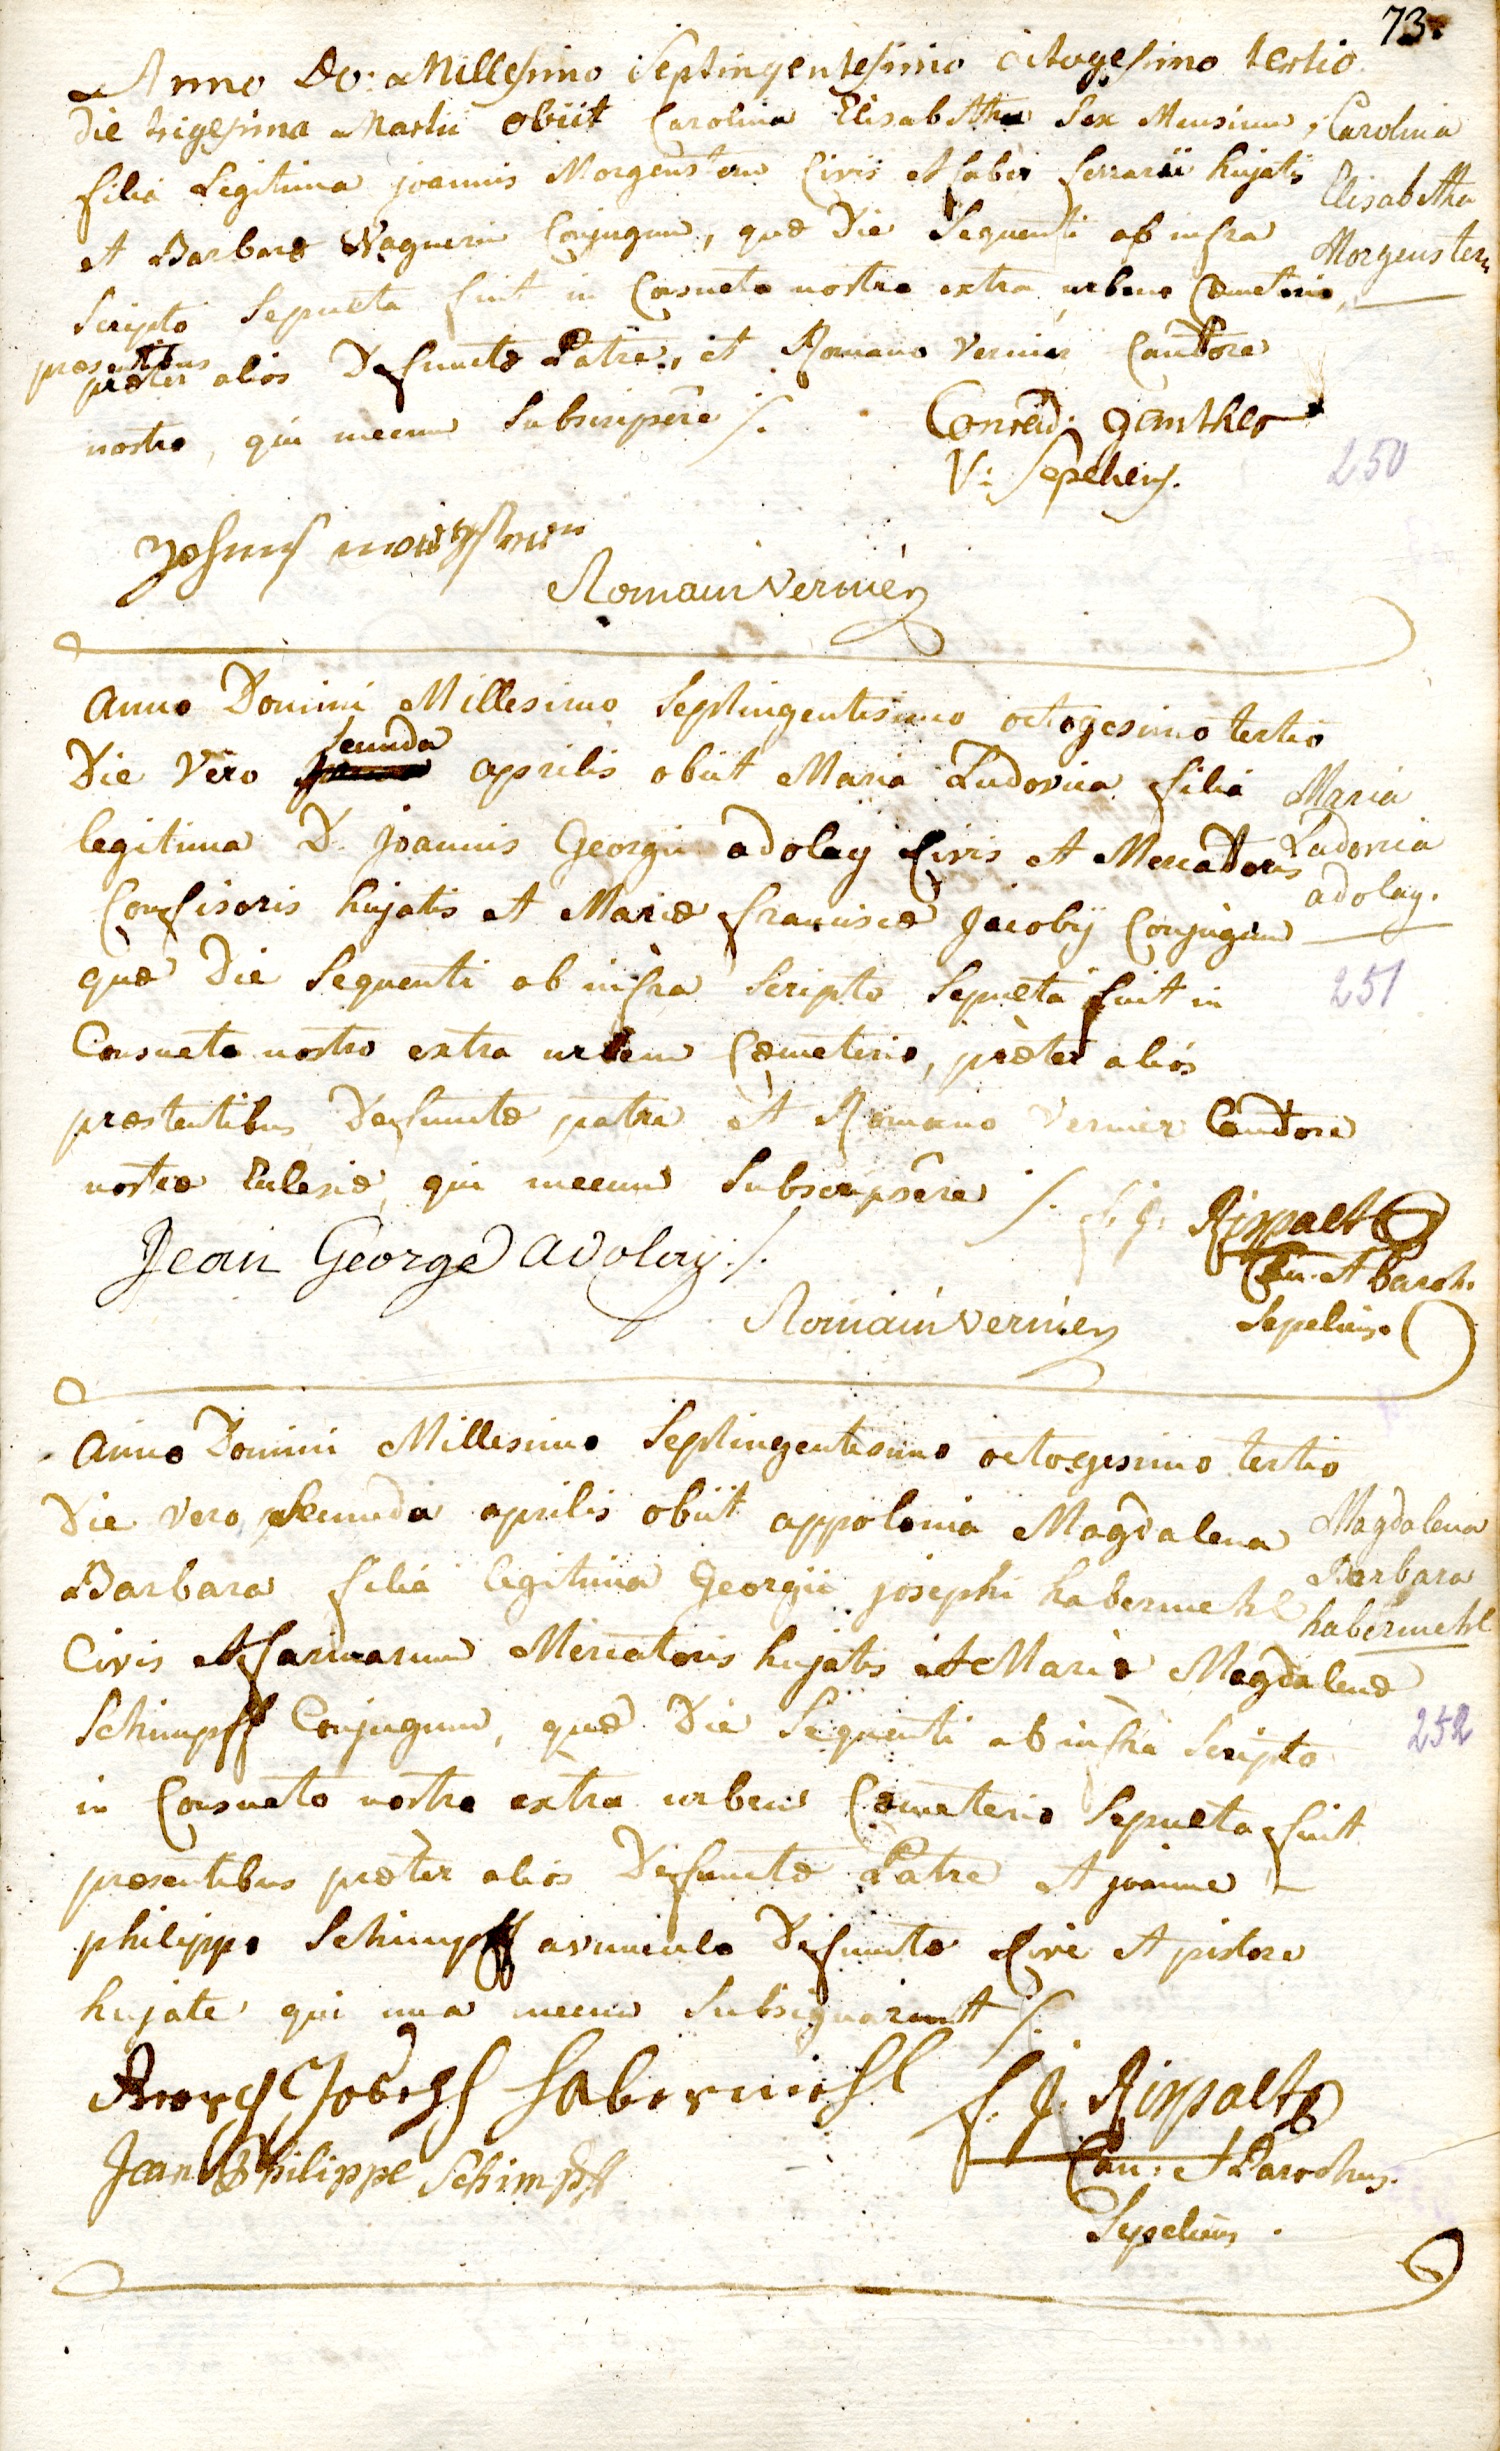 73.
Anno Do: Millesimo Septingentesimo octogesimo tertio
Die trigesima Martii obiit Carolina Elisabetha Sex Mensium,
Carolina
filia Legitima joannis Morgenstern Civis et fabri ferrarii hujatis
Elisabetha
et Barbaræ Wagnerin Conjugum, quæ Die Sequenti ab infra
Morgenstern
Scripto Sepulta fuit in Consueto nostro extra urbem Cœmeterio,
præsentibus
præter alios Defunctæ Patre, et Romano Vernier Cantore
nostro, qui mecum Subscripsere /.
Conrad: Günther
V: Sepeliens.
250
Romain Vernier
Anno Domini Millesimo Septingentesimo octogesimo tertio
secunda
Die Vero aprilis obiit Maria Ludovica filia
Maria
legitima D. joannis Georgii adolay Civis et Mercatoris
Ludovica
adolay.
Confisoris hujatis et Mariæ franciscæ Jacobÿ Conjugum
quæ Die Sequenti ab infra Scripto Sepulta fuit in
251
Consueto nostro extra urbem Cœmeterio, præter alios
præstentibus Defunctæ patre et Romano Vernier Cantore
nostræ Eclesiæ, qui mecum Subscripsere /.
f. J. Rippalt
Can. et Paroch.
Jean George adolay /.
Romain Vernier
Sepeliens.
Anno Domini Millesimo Septingentesimo octogesimo tertio
Die Vero Secunda aprilis obiit appolonia Magdalena
Magdalena
Barbara filia legitima Georgii josephi habermehl
Barbara
habermehl
Civis et farinarum Mercatoris hujatis et Mariæ Magdalenæ
Schimpff Conjugum, quæ Die Sequenti ab infra Scripto
252
in Consueto nostro extra urbem Cœmeterio Sepulta fuit
præsentibus præter alios Defunctæ Patre et joanne
philippo Schimpff avunculo Defunctæ Cive et pistore
hujate qui una mecum Subsignarunt /.
Georg Joseph Habermehl
f. J. Rippalt
Jean Philippe Schimpff
Can: et Parochus.
Sepeliens.